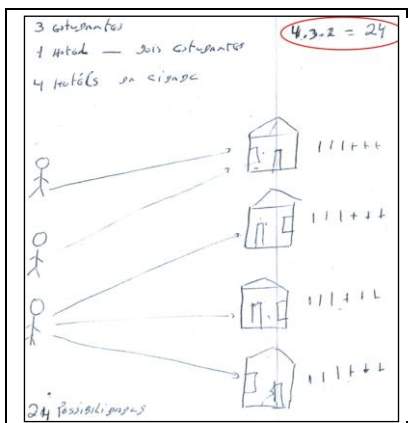 3 estudantes
4.3.2 = 24
1 Hotel — dois estudantes
4 Hotéis na cidade
24 Possibilidades